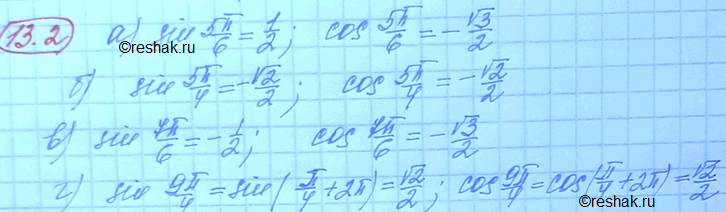 13.2) а) sin 5π/6 = 1/2; cos 5π/6 = -√3/2
©reshak.ru
©reshak.ru
б) sin 5π/4 = -√2/2; cos 5π/4 = -√2/2
в) sin 7π/6 = -1/2; cos 7π/6 = -√3/2
г) sin 9π/4 = sin(π/4 + 2π) = √2/2; cos 9π/4 = cos(π/4 + 2π) = √2/2
©reshak.ru
©reshak.ru